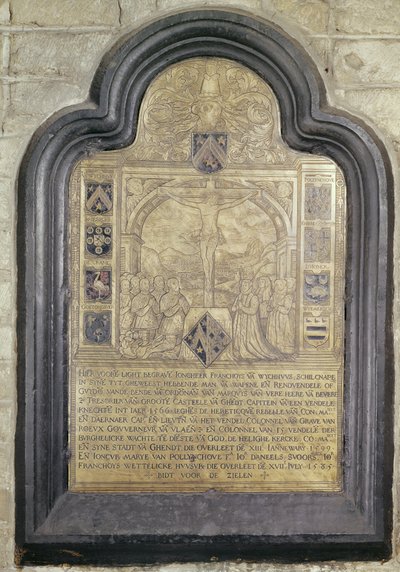 POLLYNCHOVE
HIER VOORE LIGHT BEGRAVE IONGHEER FRANCHOYS VĀ WYCHHVVS, SCHILCNAPE
IN SYNE TYT GHEWEEST HEBBENDE MAN VĀ WAPENE EN
GVYDE VANDE BENDE VĀ ORDENĀN VAN MARQVYS VAN VERE HEERE VĀ BEVERĒ
VĀ GROOTE CASTEELE VĀ GHĒDT CAPITEN VĀ EEN VENDELE
KNECHTĒ INT IAER 1566 IEGHĒS DE HERETICQVE REBELLE VAN CON. MA.
EN DAERNAER CAP. EN LIEVTN VA HET VENDEL COLONNEL VAN GRAVE VAN
ROEVX GOVVERNEVR VĀ VLAĒN EN COLONNEL VAN 15 VENDELE DER
BVRGHELICKE WACHTE TE DIESTE VĀ GOD, DE HELIGHE KERCKE, CO. MA.
EN SYNE STADT VĀ GHENDT DIE OVERLEET DĒ XIII IANNEWARY 1599
EN IONCVR MARYE VAN POLLYNCHOVE Fa Io DANEELS SVOORS. Io
FRANCHOYS WETTELICKE HVVSVR DIE OVERLEET DĒ XVII IVLY 1585
BIDT VOOR DE ZIELEN